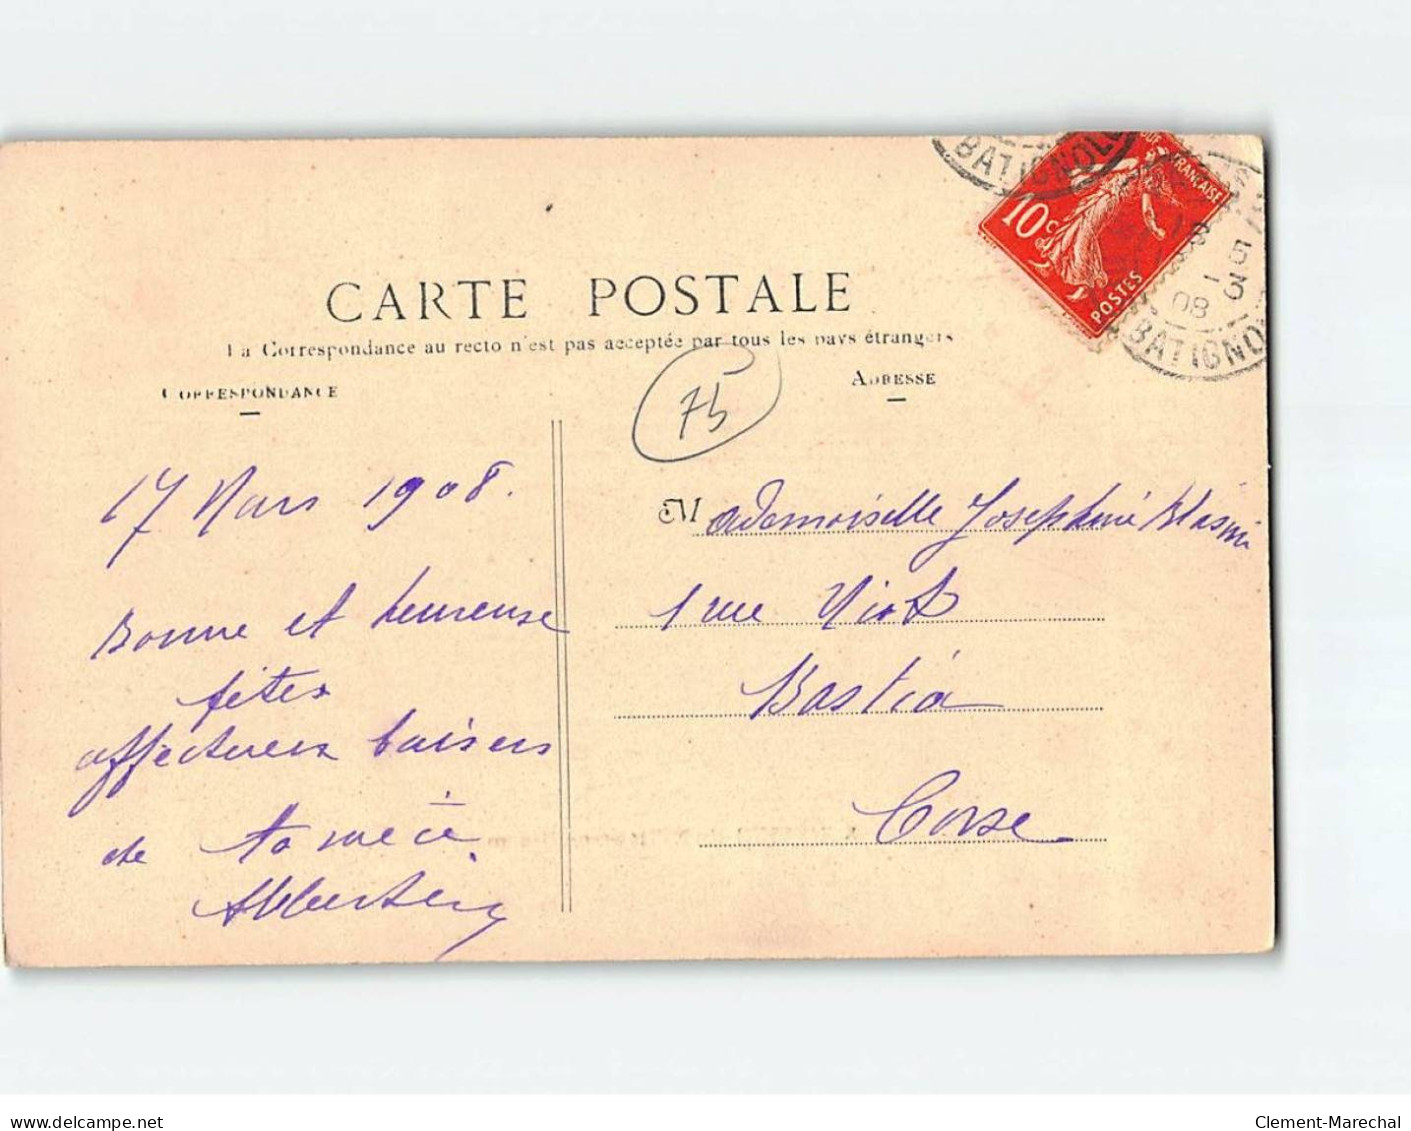 BATIGNOL
RÉPUBLIQUE FRANÇAISE
10c
POSTES
5
3
08
BATIGNOL
CARTE POSTALE
La Correspondance au recto n'est pas acceptée par tous les pays étrangers
CORRESPONDANCE
ADRESSE
75
17 Mars 1908.
Bonne et heureuse
fêtes
affectueux baisers
de ta
Mademoiselle Josephine
1 rue
Bastia
Corse
delcampe.net
Clement-Marechal